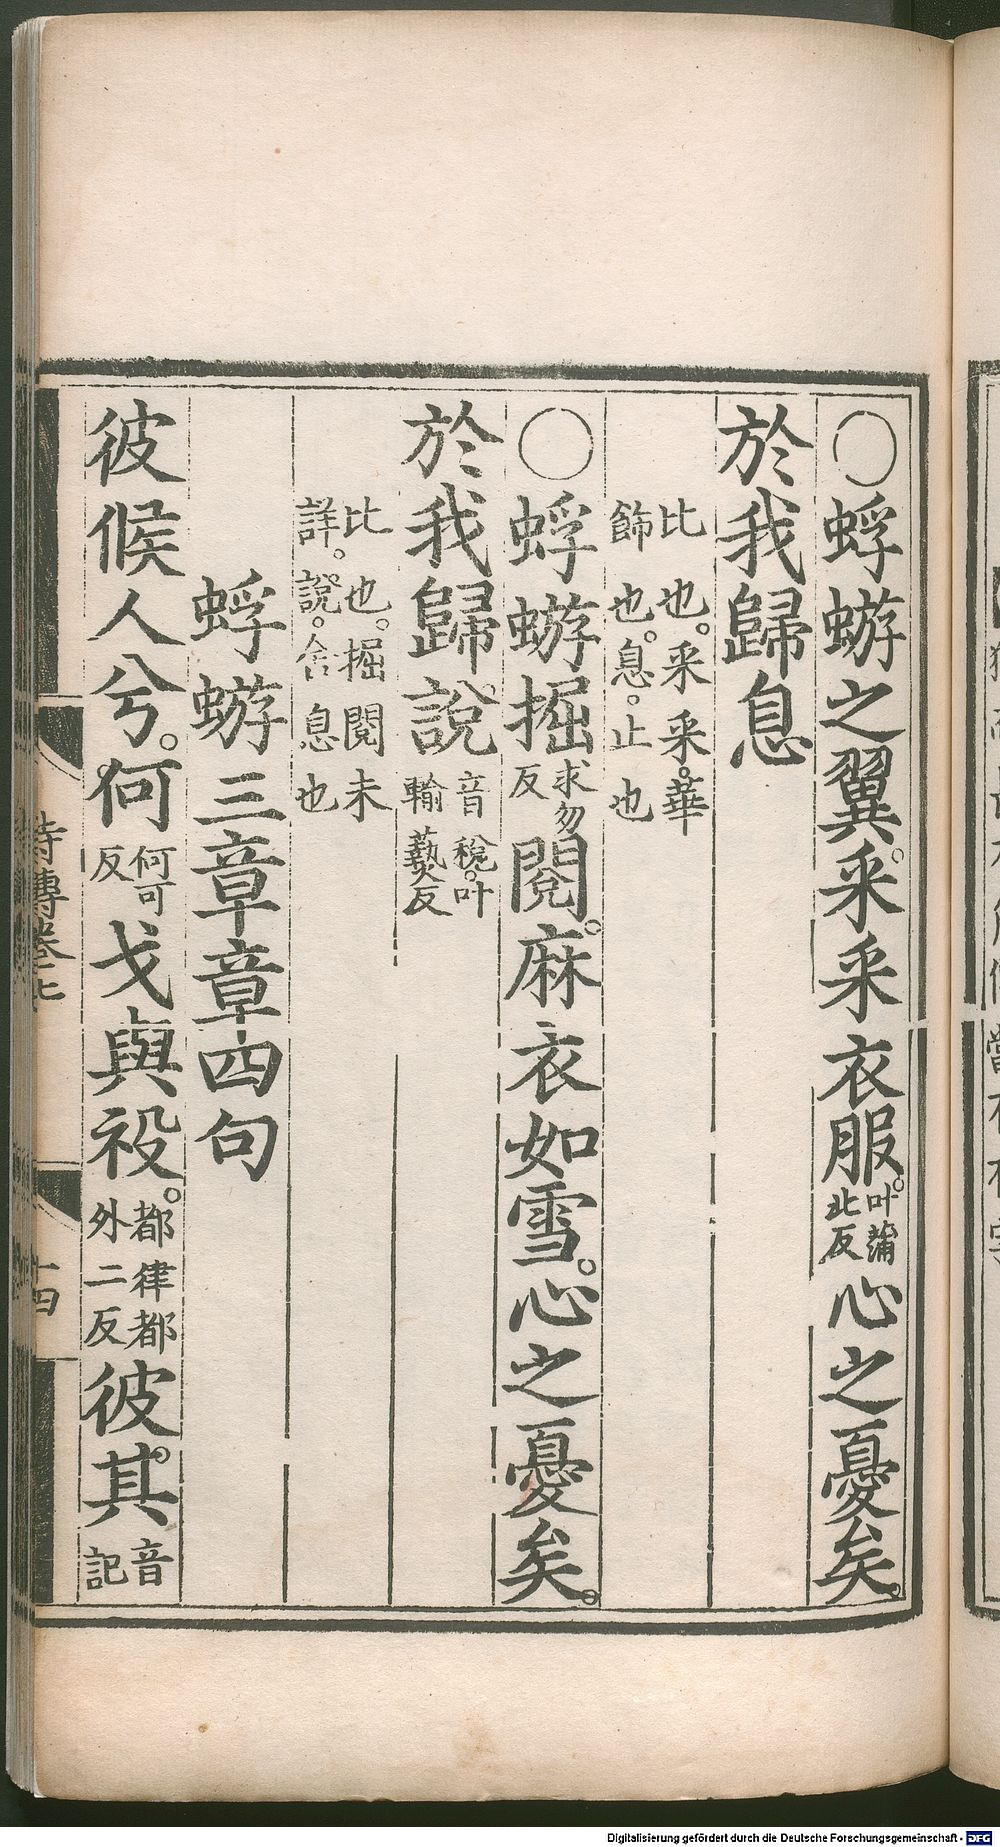 ○蜉蝣之翼。采采衣服。叶蒲北反心之憂矣。
於我歸息
比也。采采。華飾也。息。止也
○蜉蝣掘求勿反閱。麻衣如雪。心之憂矣。
於我歸說音稅。叶輸爇反
比也。掘閱未詳。說。舍息也
蜉蝣三章章四句
彼候人兮。何何可反戈與祋。都律都外二反彼其音記
詩傳卷七
十四
Digitalisierung gefördert durch die Deutsche Forschungsgemeinschaft - DFG